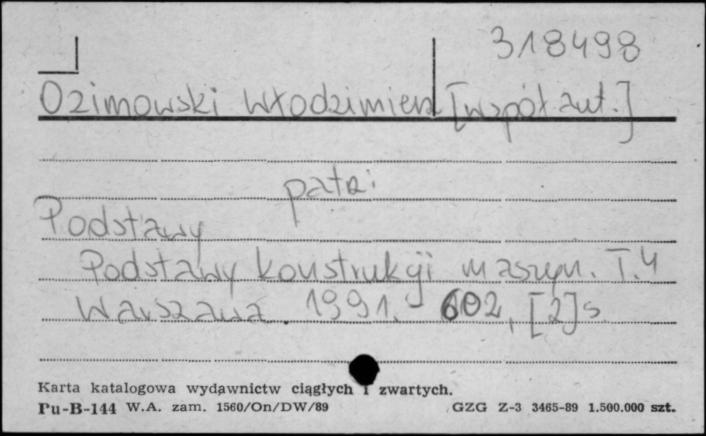 318498
Ozimowski Włodzimierz [współaut.]
patrz:
Podstawy
Podstawy konstrukcji maszyn. T.4
Warszawa. 1991. - 602, [2]s
Karta katalogowa wydawnictw ciągłych i zwartych.
Pu-B-144 W.A. zam. 1560/On/DW/89 GZG Z-3 3465-89 1.500.000 szt.